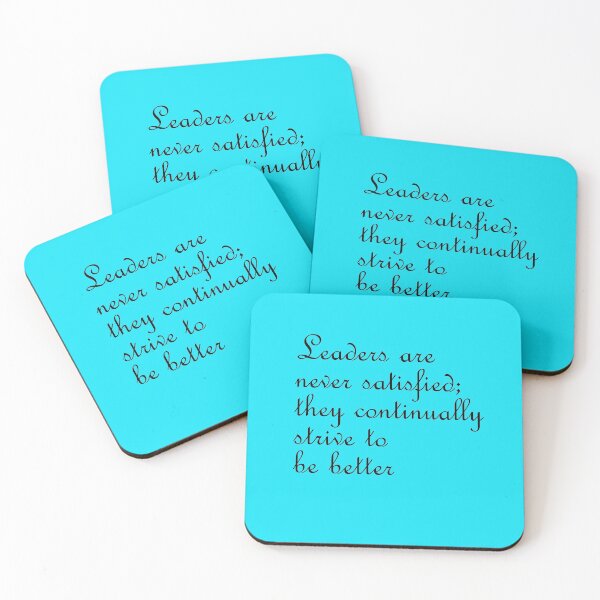 Leaders are
never satisfied;
they continually
Leaders are
never satisfied;
they continually
strive to
be better
Leaders are
never satisfied;
they continually
strive to
be better
Leaders are
never satisfied;
they continually
strive to
be better